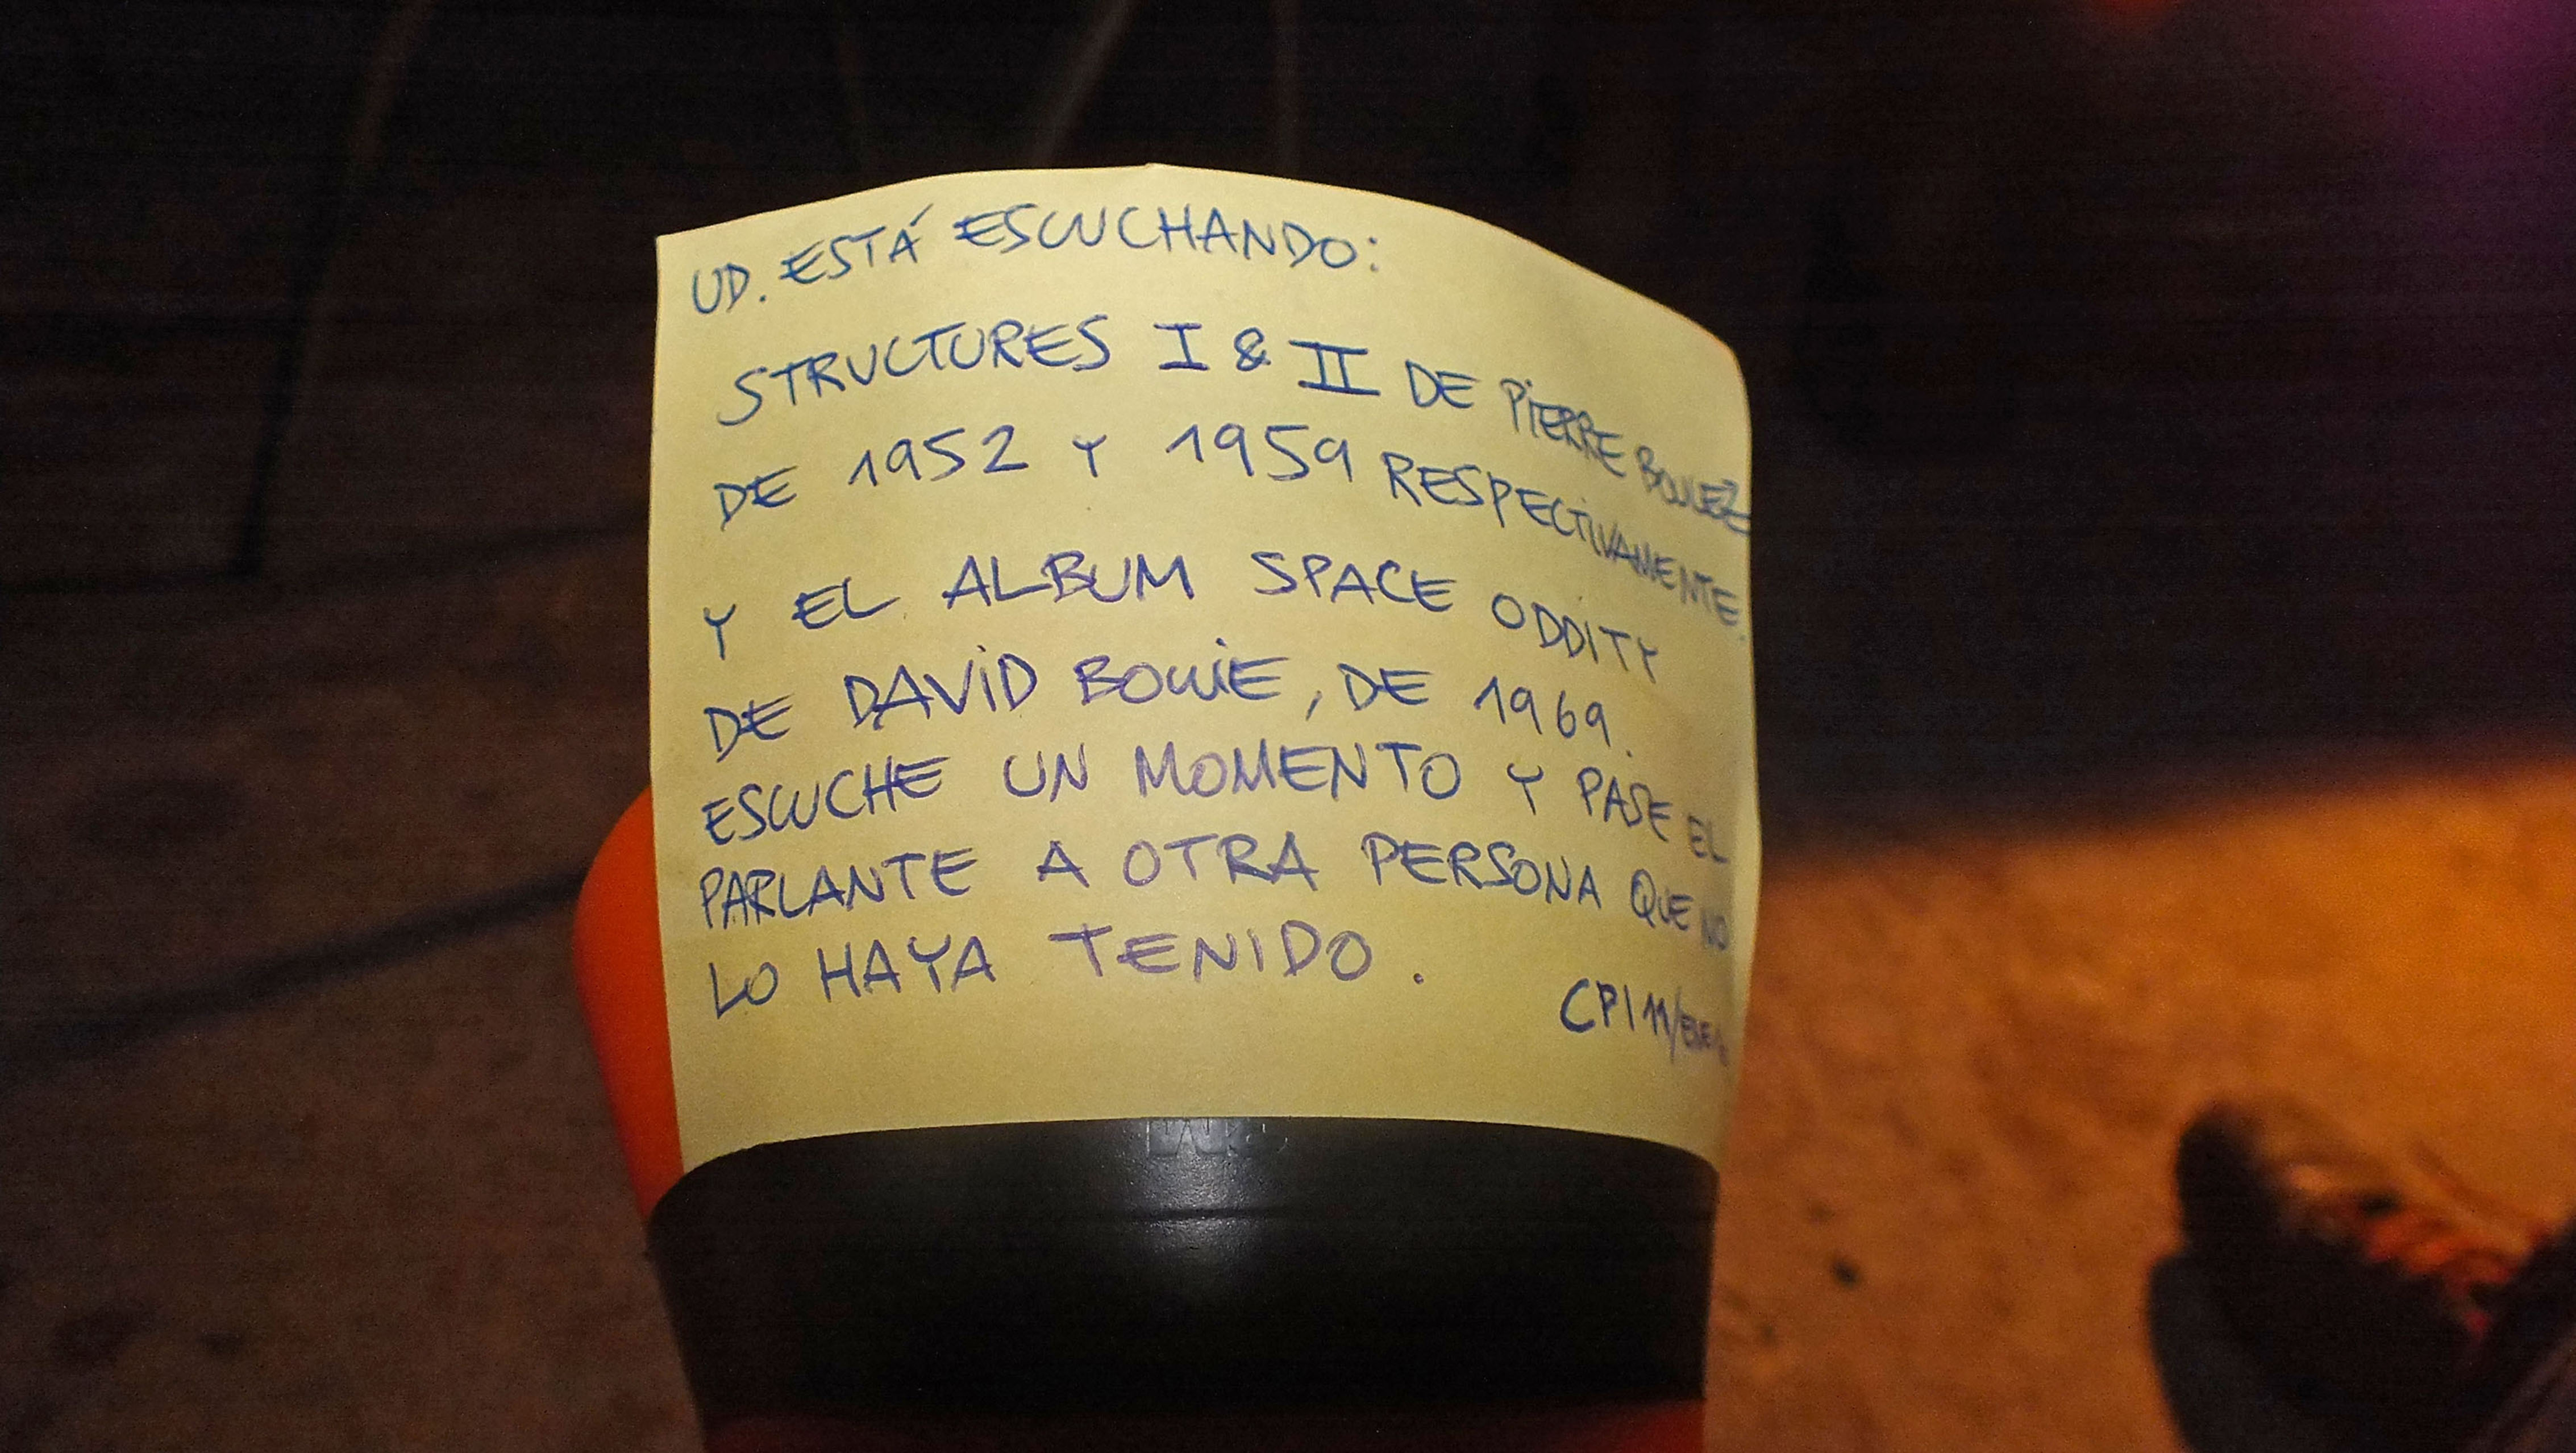 UD. ESTÁ ESCUCHANDO:
STRUCTURES I & II DE PIERRE BOULEZ
DE 1952 Y 1959 RESPECTIVAMENTE.
Y EL ALBUM SPACE ODDITY
DE DAVID BOWIE, DE 1969.
ESCUCHE UN MOMENTO Y PASE EL
PARLANTE A OTRA PERSONA QUE NO
LO HAYA TENIDO.